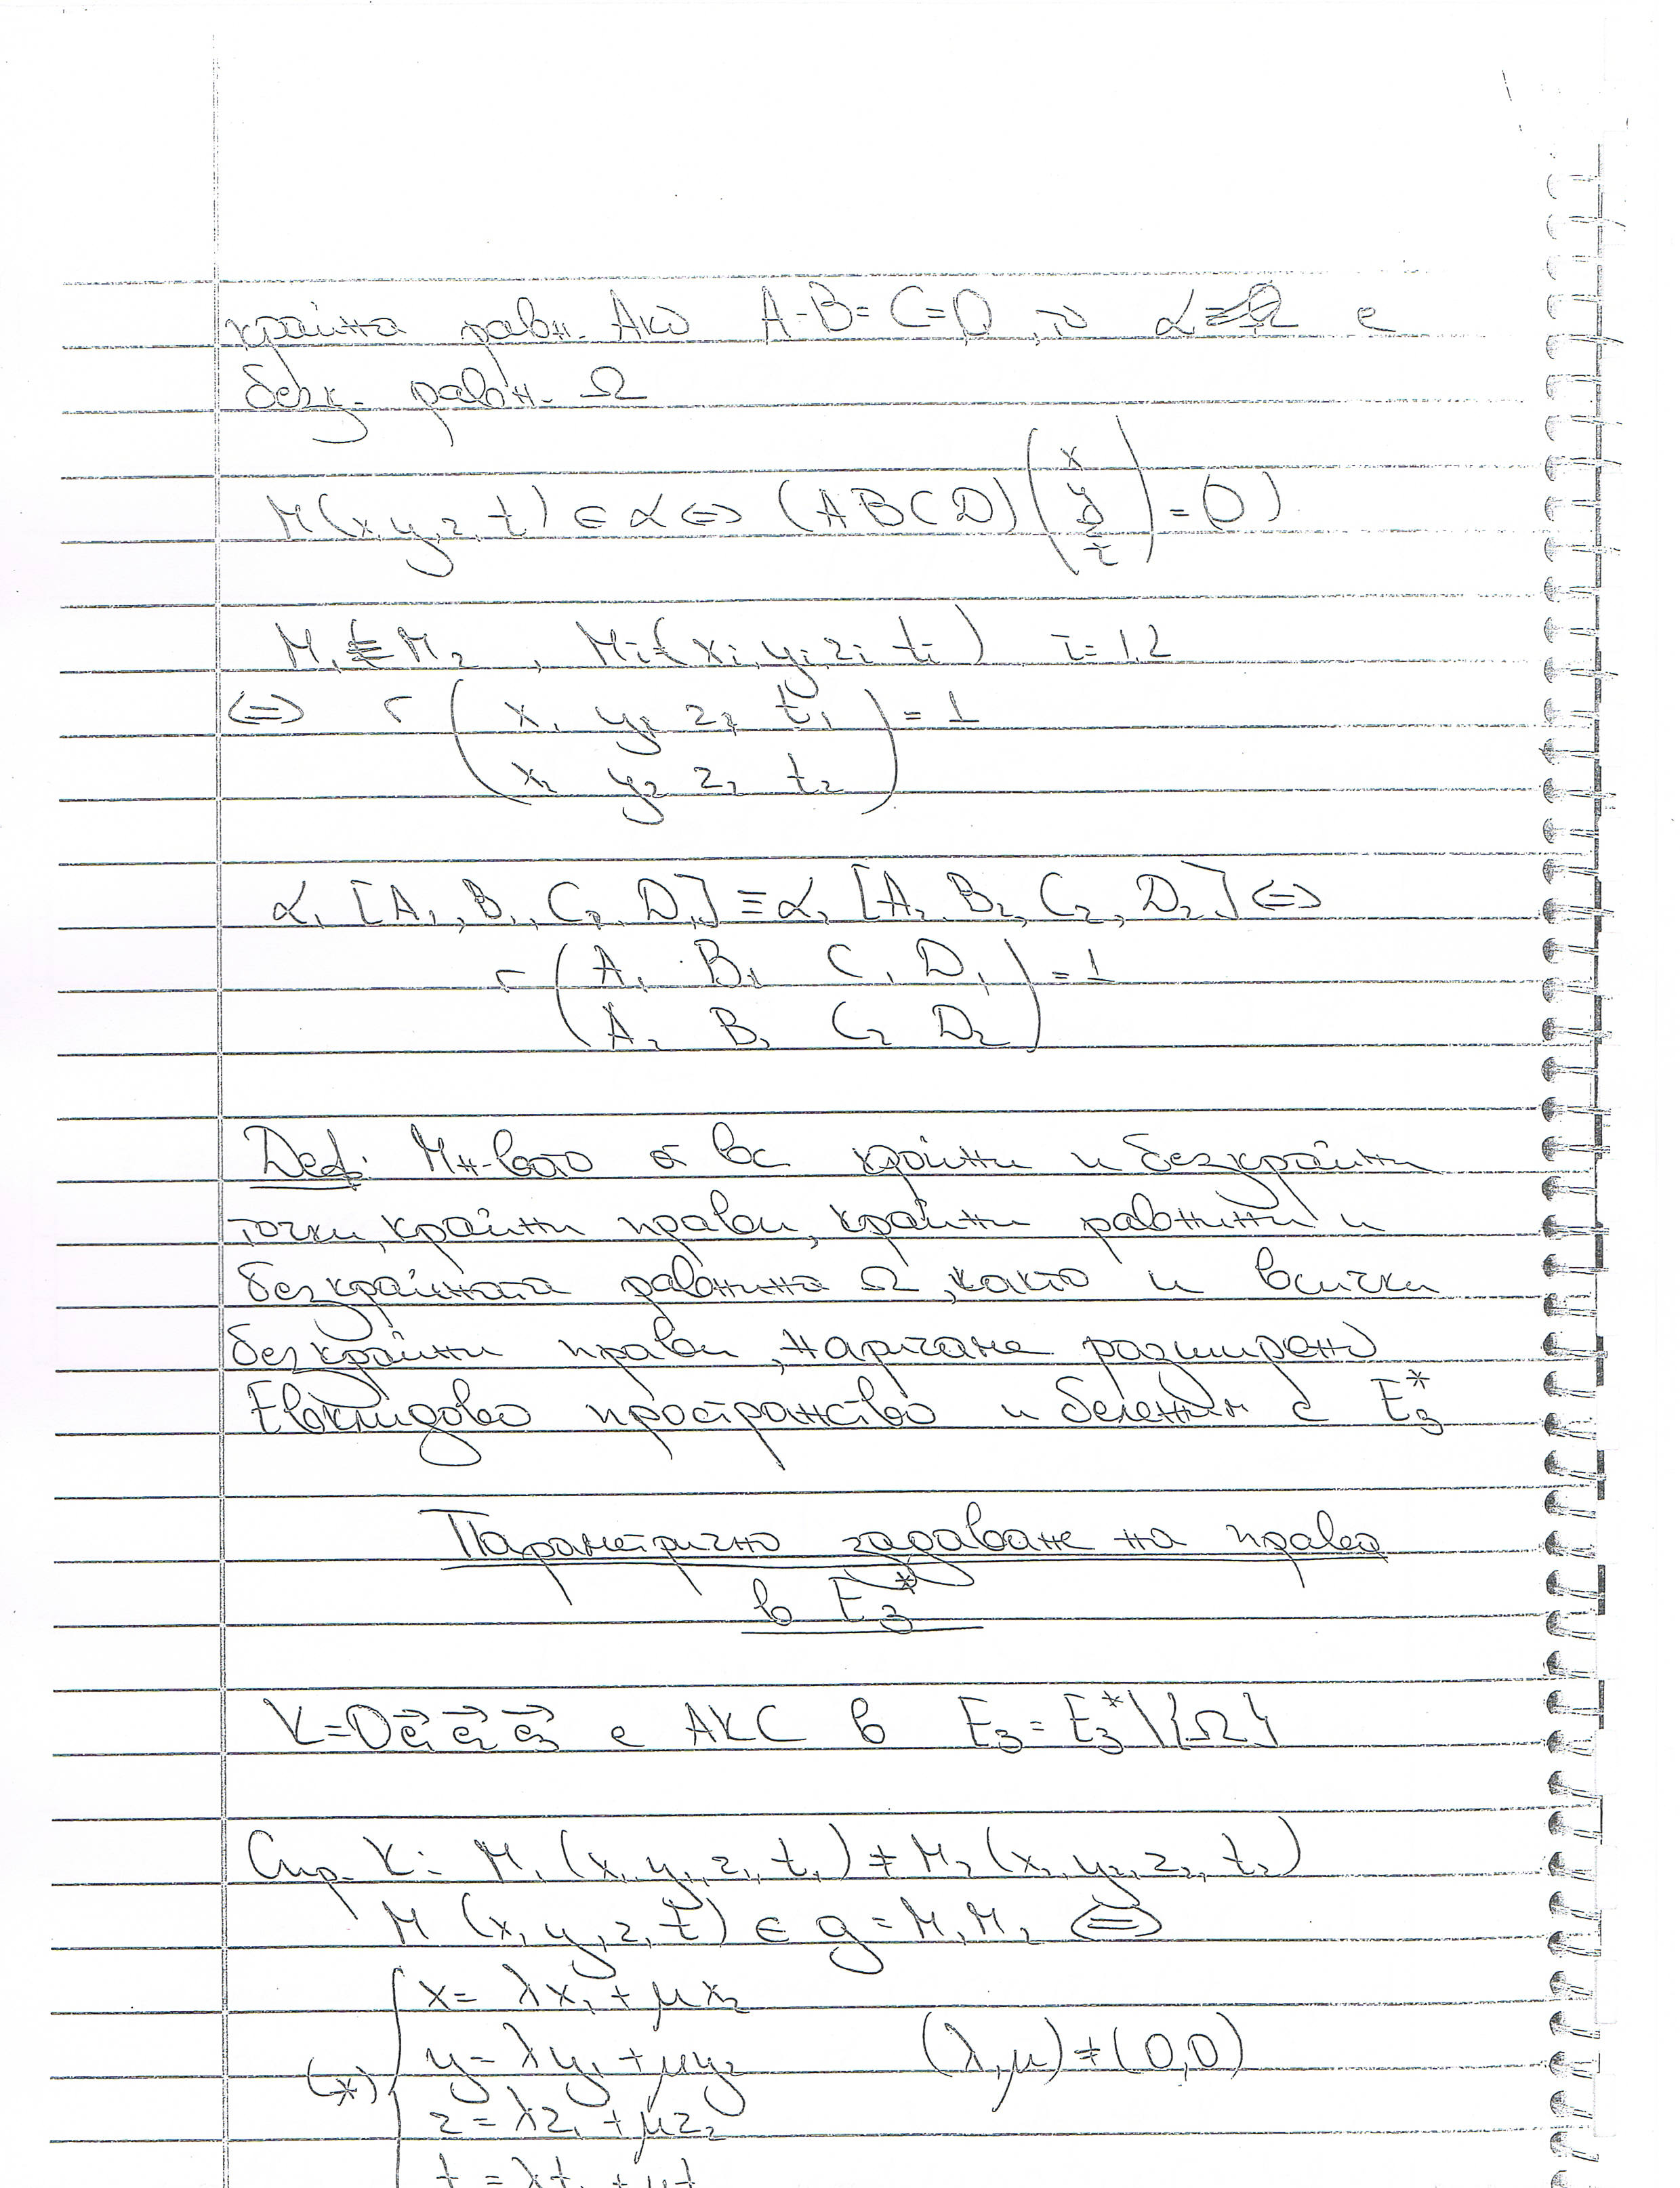 крайна равн. Ако A=B=C=0, то α≡Ω е
безкр. равн. Ω
M(x,y,z,t) ∈ α ⇔ (A B C D) (x y z t) = (0)
M₁ ≡ M₂ , Mᵢ(xᵢ, yᵢ, zᵢ, tᵢ) i=1,2
⇔ r (x₁ y₁ z₁ t₁
x₂ y₂ z₂ t₂) = 1
α₁ [A₁, B₁, C₁, D₁] ≡ α₂ [A₂, B₂, C₂, D₂] ⇔
r (A₁ B₁ C₁ D₁
A₂ B₂ C₂ D₂) = 1
Деф: Мн-вото от вс крайни и безкрайни
точки, крайни прави, крайни равнини и
безкрайната равнина Ω, както и всички
безкрайни прави, наричаме разширено
Евклидово пространство и бележим с E₃*
Параметрично задаване на права
в E₃*
K=Oe₁→e₂→e₃→ е АКС в E₃=E₃*\{Ω}
Спр. K: M₁(x₁,y₁,z₁,t₁) ≠ M₂(x₂,y₂,z₂,t₂)
M (x,y,z,t) ∈ g = M₁M₂ ⇔
x= λx₁ + μx₂
(*) y= λy₁ + μy₂ (λ,μ)≠(0,0)
z = λz₁ + μz₂
t = λt₁ + μt